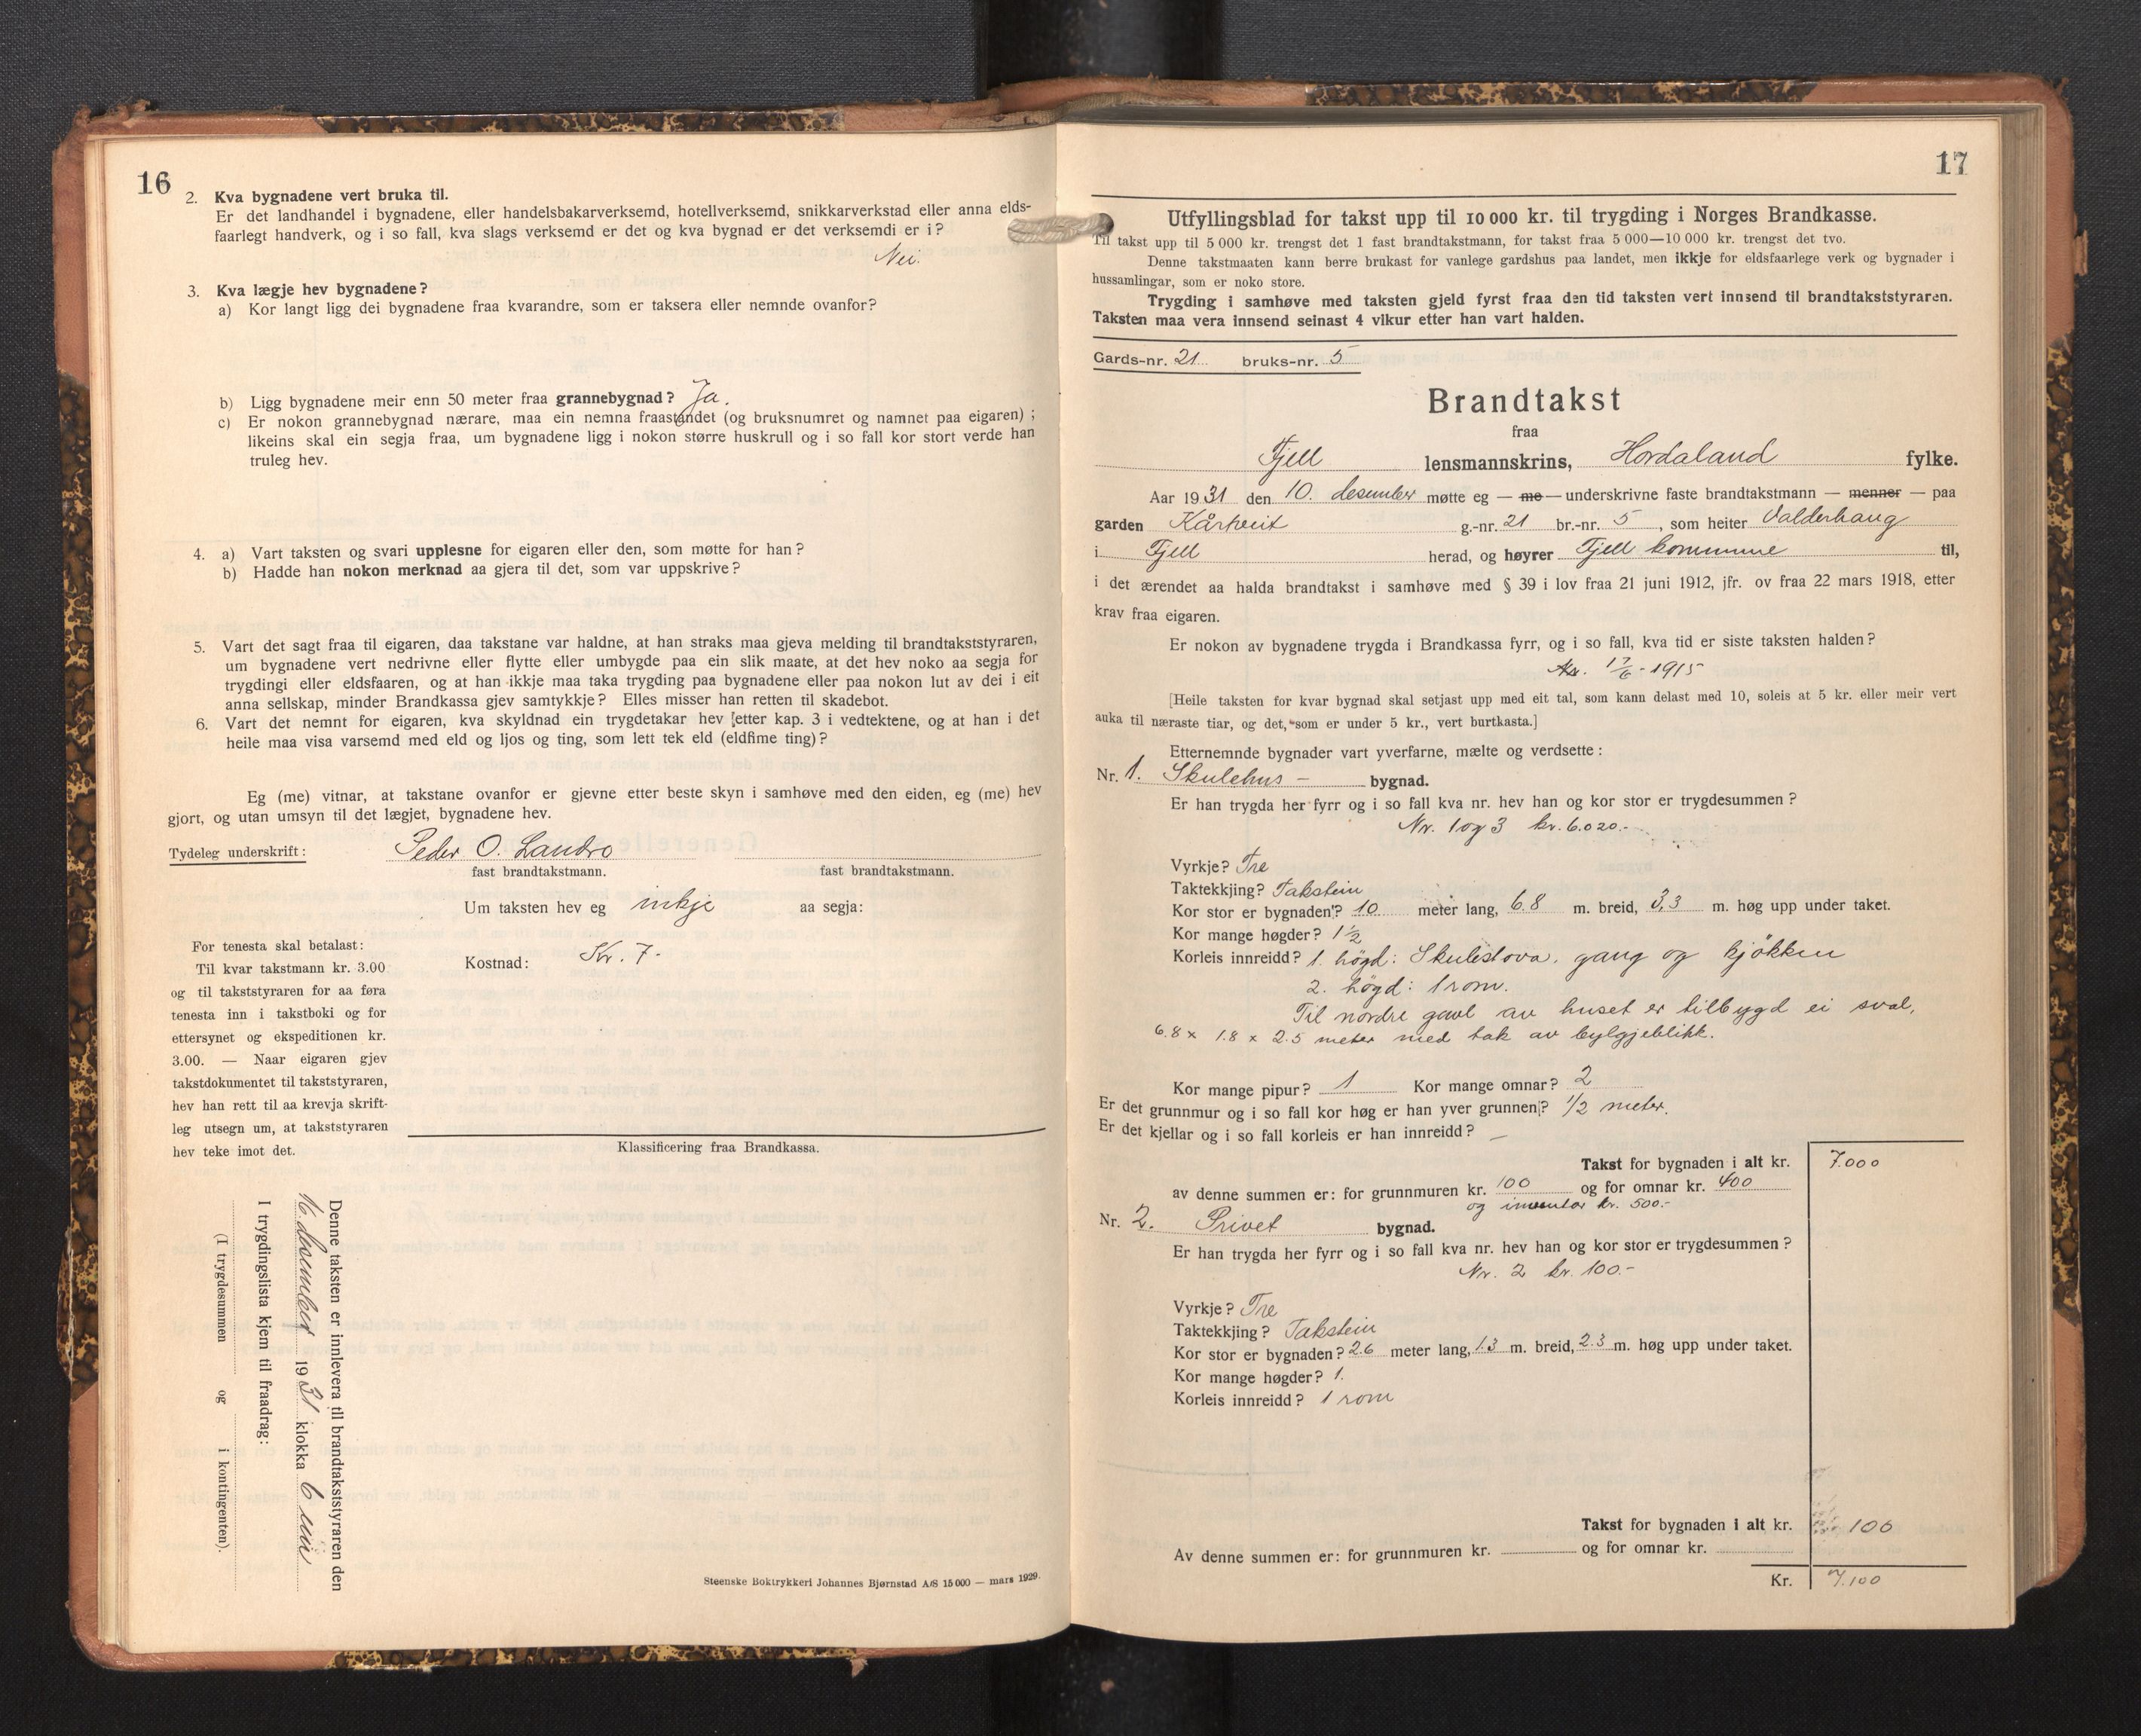 16
2. Kva bygnadene vert bruka til.
Er det landhandel i bygnadene, eller handelsbakarverksemd, hotellverksemd, snikkarverkstad eller anna elds-
faarlegt handverk, og i so fall, kva slags verksemd er det og kva bygnad er det verksemdi er i?
Nei.
3. Kva lægje hev bygnadene?
a) Kor langt ligg dei bygnadene fraa kvarandre, som er taksera eller nemnde ovanfor?
b) Ligg bygnadene meir enn 50 meter fraa grannebygnad? Ja.
c) Er nokon grannebygnad nærare, maa ein nemna fraastandet (og bruksnumret og namnet paa eigaren);
likeins skal ein segja fraa, um bygnadene ligg i nokon større huskrull og i so fall kor stort verde han
truleg hev.
4. a) Vart taksten og svari upplesne for eigaren eller den, som møtte for han?
b) Hadde han nokon merknad aa gjera til det, som var uppskrive?
5. Vart det sagt fraa til eigaren, daa takstane var haldne, at han straks maa gjeva melding til brandtakststyraren,
um bygnadene vert nedrivne eller flytte eller umbygde paa ein slik maate, at det hev noko aa segja for
trygdingi eller eldsfaaren, og at han ikkje maa taka trygding paa bygnadene eller paa nokon lut av dei i eit
anna selskap, minder Brandkassa gjev samtykkje? Elles misser han retten til skadebot.
6. Vart det nemnt for eigaren, kva skyldnad ein trygdetakar hev etter kap. 3 i vedtektene, og at han i det
heile maa visa varsemd med eld og ljos og ting, som lett tek eld (eldfime ting)?
Eg (me) vitnar, at takstane ovanfor er gjevne etter beste skyn i samhøve med den eiden, eg (me) hev
gjort, og utan umsyn til det lægjet, bygnadene hev.
Tydeleg underskrift: Peder O. Landro
fast brandtakstmann. fast brandtakstmann.
Um taksten hev eg inkje aa segja:
Kostnad: Kr. 7-
For tenesta skal betalast:
Til kvar takstmann kr. 3.00
og til takststyraren for aa føra
tenesta inn i takstboki og for
ettersynet og ekspeditionen kr.
3.00. — Naar eigaren gjev
takstdokumentet til takststyraren,
hev han rett til aa krevja skrift-
leg utsegn um, at takststyraren
hev teke imot det.
Klassificering fraa Brandkassa.
Denne taksten er innlevera til brandtakststyraren den
16. desember 1931 klokka 6 em
I trygdingslista kjem til fraadrag:
(I trygdesummen og i kontingenten).
Steenske Boktrykkeri Johannes Bjørnstad A/S 15 000 — mars 1929.
17
Utfyllingsblad for takst upp til 10 000 kr. til trygding i Norges Brandkasse.
Til takst upp til 5 000 kr. trengst det 1 fast brandtakstmann, for takst fraa 5 000—10 000 kr. trengst det tvo.
Denne takstmaaten kann berre brukast for vanlege gardshus paa landet, men ikkje for eldsfaarlege verk og bygnader i
hussamlingar, som er noko store.
Trygding i samhøve med taksten gjeld fyrst fraa den tid taksten vert innsend til brandtakststyraren.
Taksten maa vera innsend seinast 4 vikur etter han vart halden.
Gards-nr. 21 bruks-nr. 5
Brandtakst
fraa
Fjell lensmannskrins, Hordaland fylke.
Aar 1931 den 10. desember møtte eg — me — underskrivne faste brandtakstmann — menner — paa
garden Kårtveit g.-nr. 21 br.-nr. 5, som heiter Valderhaug
i Fjell herad, og høyrer Fjell kommune til,
i det ærendet aa halda brandtakst i samhøve med § 39 i lov fraa 21 juni 1912, jfr. ov fraa 22 mars 1918, etter
krav fraa eigaren.
Er nokon av bygnadene trygda i Brandkassa fyrr, og i so fall, kva tid er siste taksten halden?
17/6-1915
[Heile taksten for kvar bygnad skal setjast upp med eit tal, som kann delast med 10, soleis at 5 kr. eller meir vert
auka til næraste tiar, og det, som er under 5 kr., vert burtkasta.]
Etternemnde bygnader vart yverfarne, mælte og verdsette:
Nr. 1. Skulehus – bygnad.
Er han trygda her fyrr og i so fall kva nr. hev han og kor stor er trygdesummen?
Nr. 1 og 3 kr. 6.020.-
Vyrkje? Tre
Taktekkjing? Takstein
Kor stor er bygnaden? 10 meter lang, 6.8 m. breid, 3,3 m. høg upp under taket.
Kor mange høgder? 1 ½
Korleis innreidd? 1. högd: Skulestova, gang og kjökken
2. högd: 1 rom.
Til nordre gavl av huset er tilbygd ei sval,
6.8 x 1.8 x 2.5 meter med tak av bylgjeblikk.
Kor mange pipur? 1 Kor mange omnar? 2
Er det grunnmur og i so fall kor høg er han yver grunnen? 1/2 meter.
Er det kjellar og i so fall korleis er han innreidd? —
Takst for bygnaden i alt kr. 7.000
av denne summen er: for grunnmuren kr. 100 og for omnar kr. 400
og inventar kr. 500.-
Nr. 2. Privet bygnad.
Er han trygda her fyrr og i so fall kva nr. hev han og kor stor er trygdesummen?
Nr. 2 kr. 100.-
Vyrkje? Tre
Taktekkjing? Takstein
Kor stor er bygnaden? 2.6 meter lang, 1.3 m. breid, 2.3 m. høg upp under taket.
Kor mange høgder? 1.
Korleis innreidd? 1 rom
Takst for bygnaden i alt kr. 100
Av denne summen er: for grunnmuren kr. og for omnar kr.
Kr. 7.100